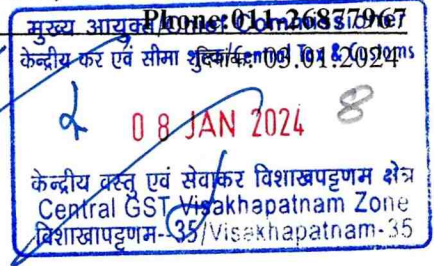 Phone:011-26877967
मुख्य आयुक्त/Chief Commissioner
केन्द्रीय कर एवं सीमा शुल्क/Central Tax & Customs
दिनांक: 05.01.2024
08 JAN 2024
8
केन्द्रीय वस्तु एवं सेवाकर विशाखपट्टणम क्षेत्र
Central GST Visakhapatnam Zone
विशाखापट्टणम--35/Visakhapatnam-35